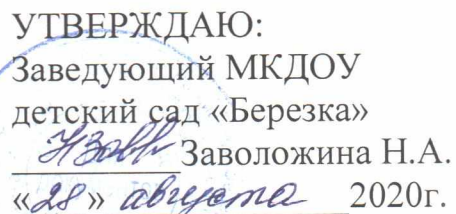 УТВЕРЖДАЮ:
Заведующий МКДОУ
детский сад «Березка»
Заволожина Н.А.
«28» августа 2020г.